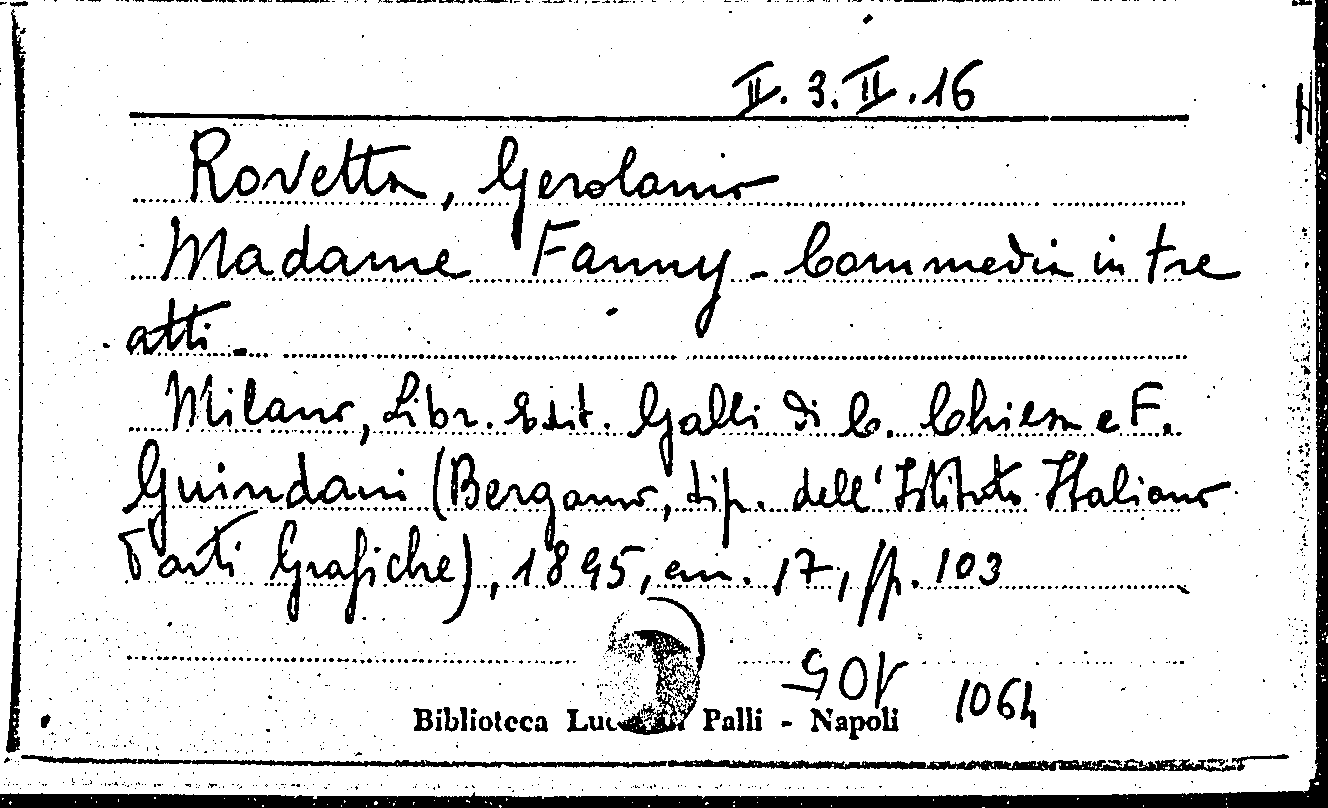 II. 3. II. 16
Rovetta, Gerolamo
Madame Fanny - Commedia in tre
atti -
Milano, Libr. Edit. Galli di C. Chiesa e F.
Guindani (Bergamo, tip. dell'Istituto Italiano
d'arti Grafiche), 1895, cm. 17, pp. 103
1064
Biblioteca Palli - Napoli